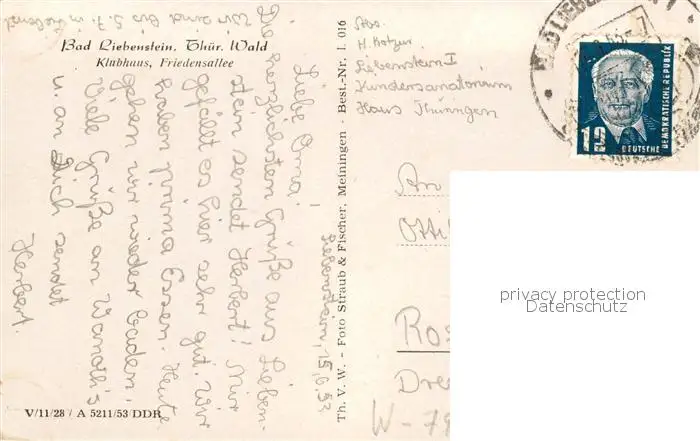 Wir sind bis 5.7. in Liebenst.
Bad Liebenstein, Thür. Wald
Klubhaus, Friedensallee
Liebenstein, 15.6.53
Liebe Oma!
Die herzlichsten Grüße aus Lieben-
stein sendet Herbert! Mir
gefällt es hier sehr gut. Wir
haben prima Essen. Heute
gehen wir wieder baden.
Viele Grüße an
u. an Dich sendet
Herbert.
V/11/28 / A 5211/53 DDR
Th. V. W. - Foto Straub & Fischer, Meiningen - Best.-Nr. L 016
Abs.
H. Kotzur
Liebenstein I
Kindersanatorium
Haus Thüringen
12
DEUTSCHE
DEMOKRATISCHE REPUBLIK
An
Otti
Ros
Dre
W - 79
privacy protection
Datenschutz